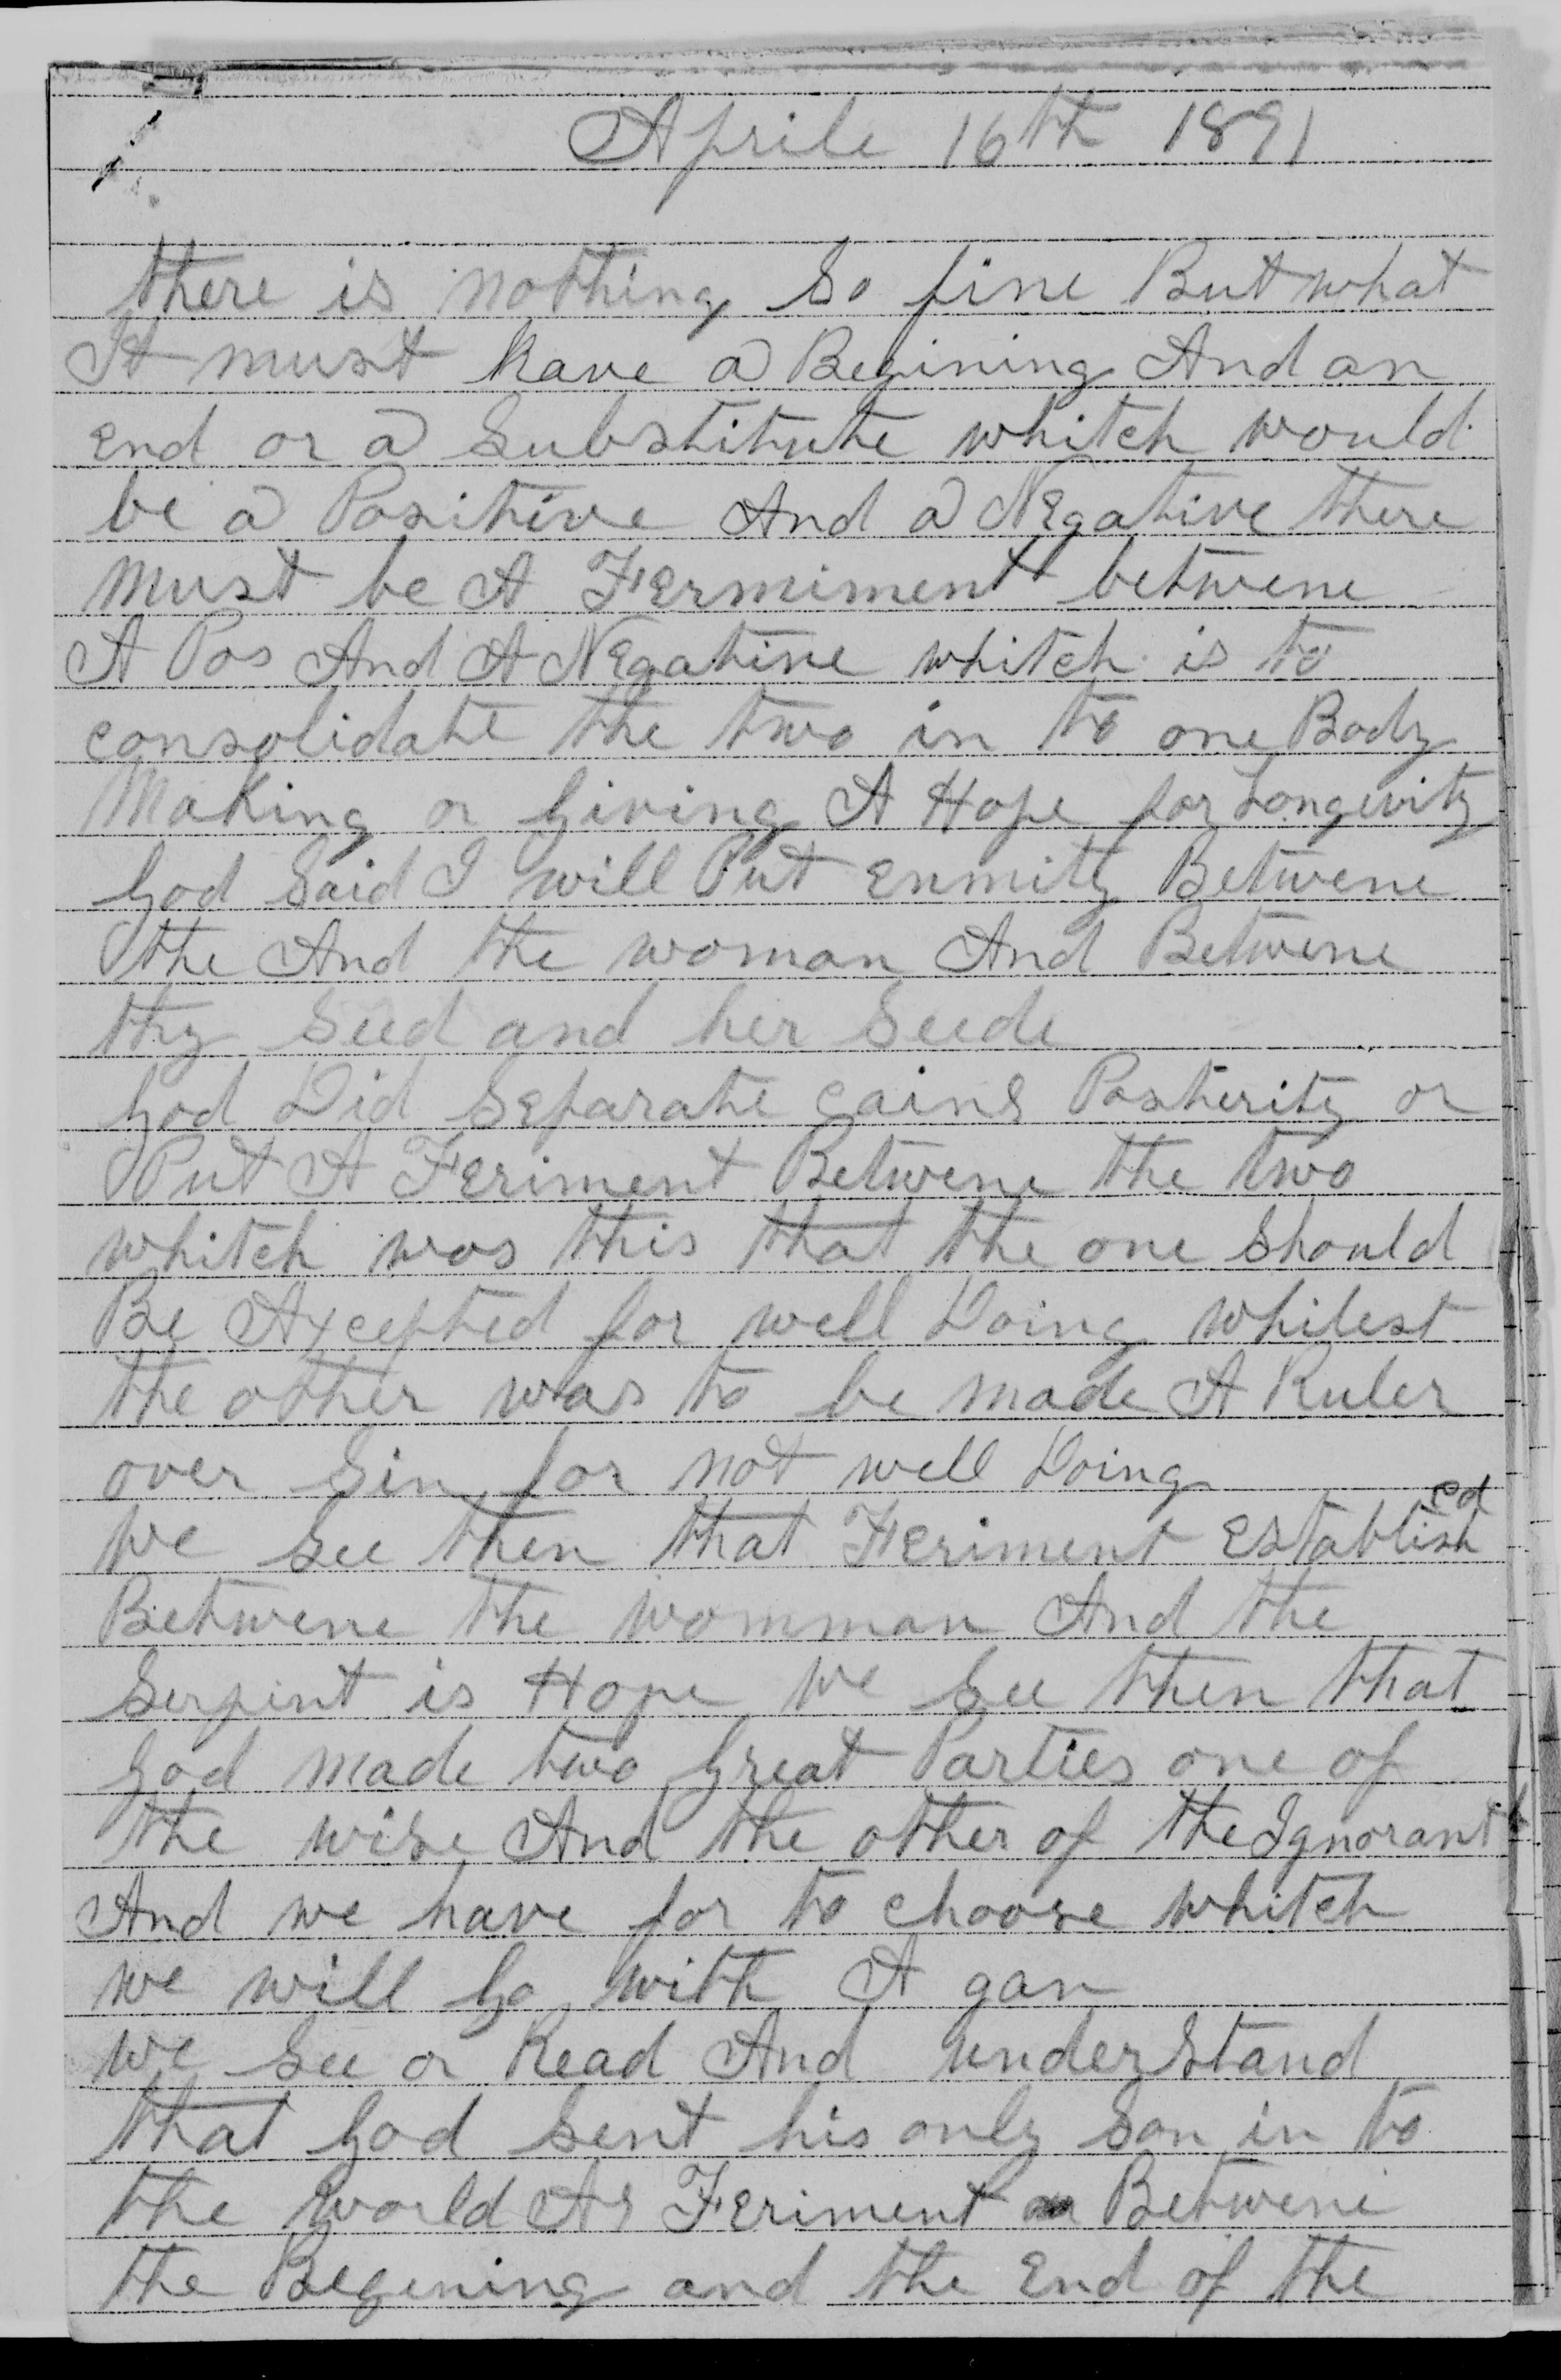 Aprile 16th 1891
there is nothing So fine But what
It must have a Begining And an
End or a Substitute whitch would
be a Positive And a NEgative there
must be A FErmiment betwene
A Pos And A NEgative whitch is to
consolidate the two in to one Body
Making or Giving A Hope for Longevity
God Said I will Put Enmity Betwene
the And the woman And Betwene
thy Seed and her Seede
God Did SEparate cains Posterity or
Put A FEriment Betwene the two
whitch was this that the one Should
Be Axcepted for well Doing whilest
the other was to be made A Ruler
over Sin for not well Doing
we See then that FEriment Establish ed
Betwene the womman And the
Serpint is Hope we See then that
God made two Great Parties one of
the wise And the other of the Ignorant
And we have for to choose whitch
we will Go with A gan
we See or Read And underStand
that God Sent his only Son in to
the world As FEriment Betwene
the Begening and the End of the